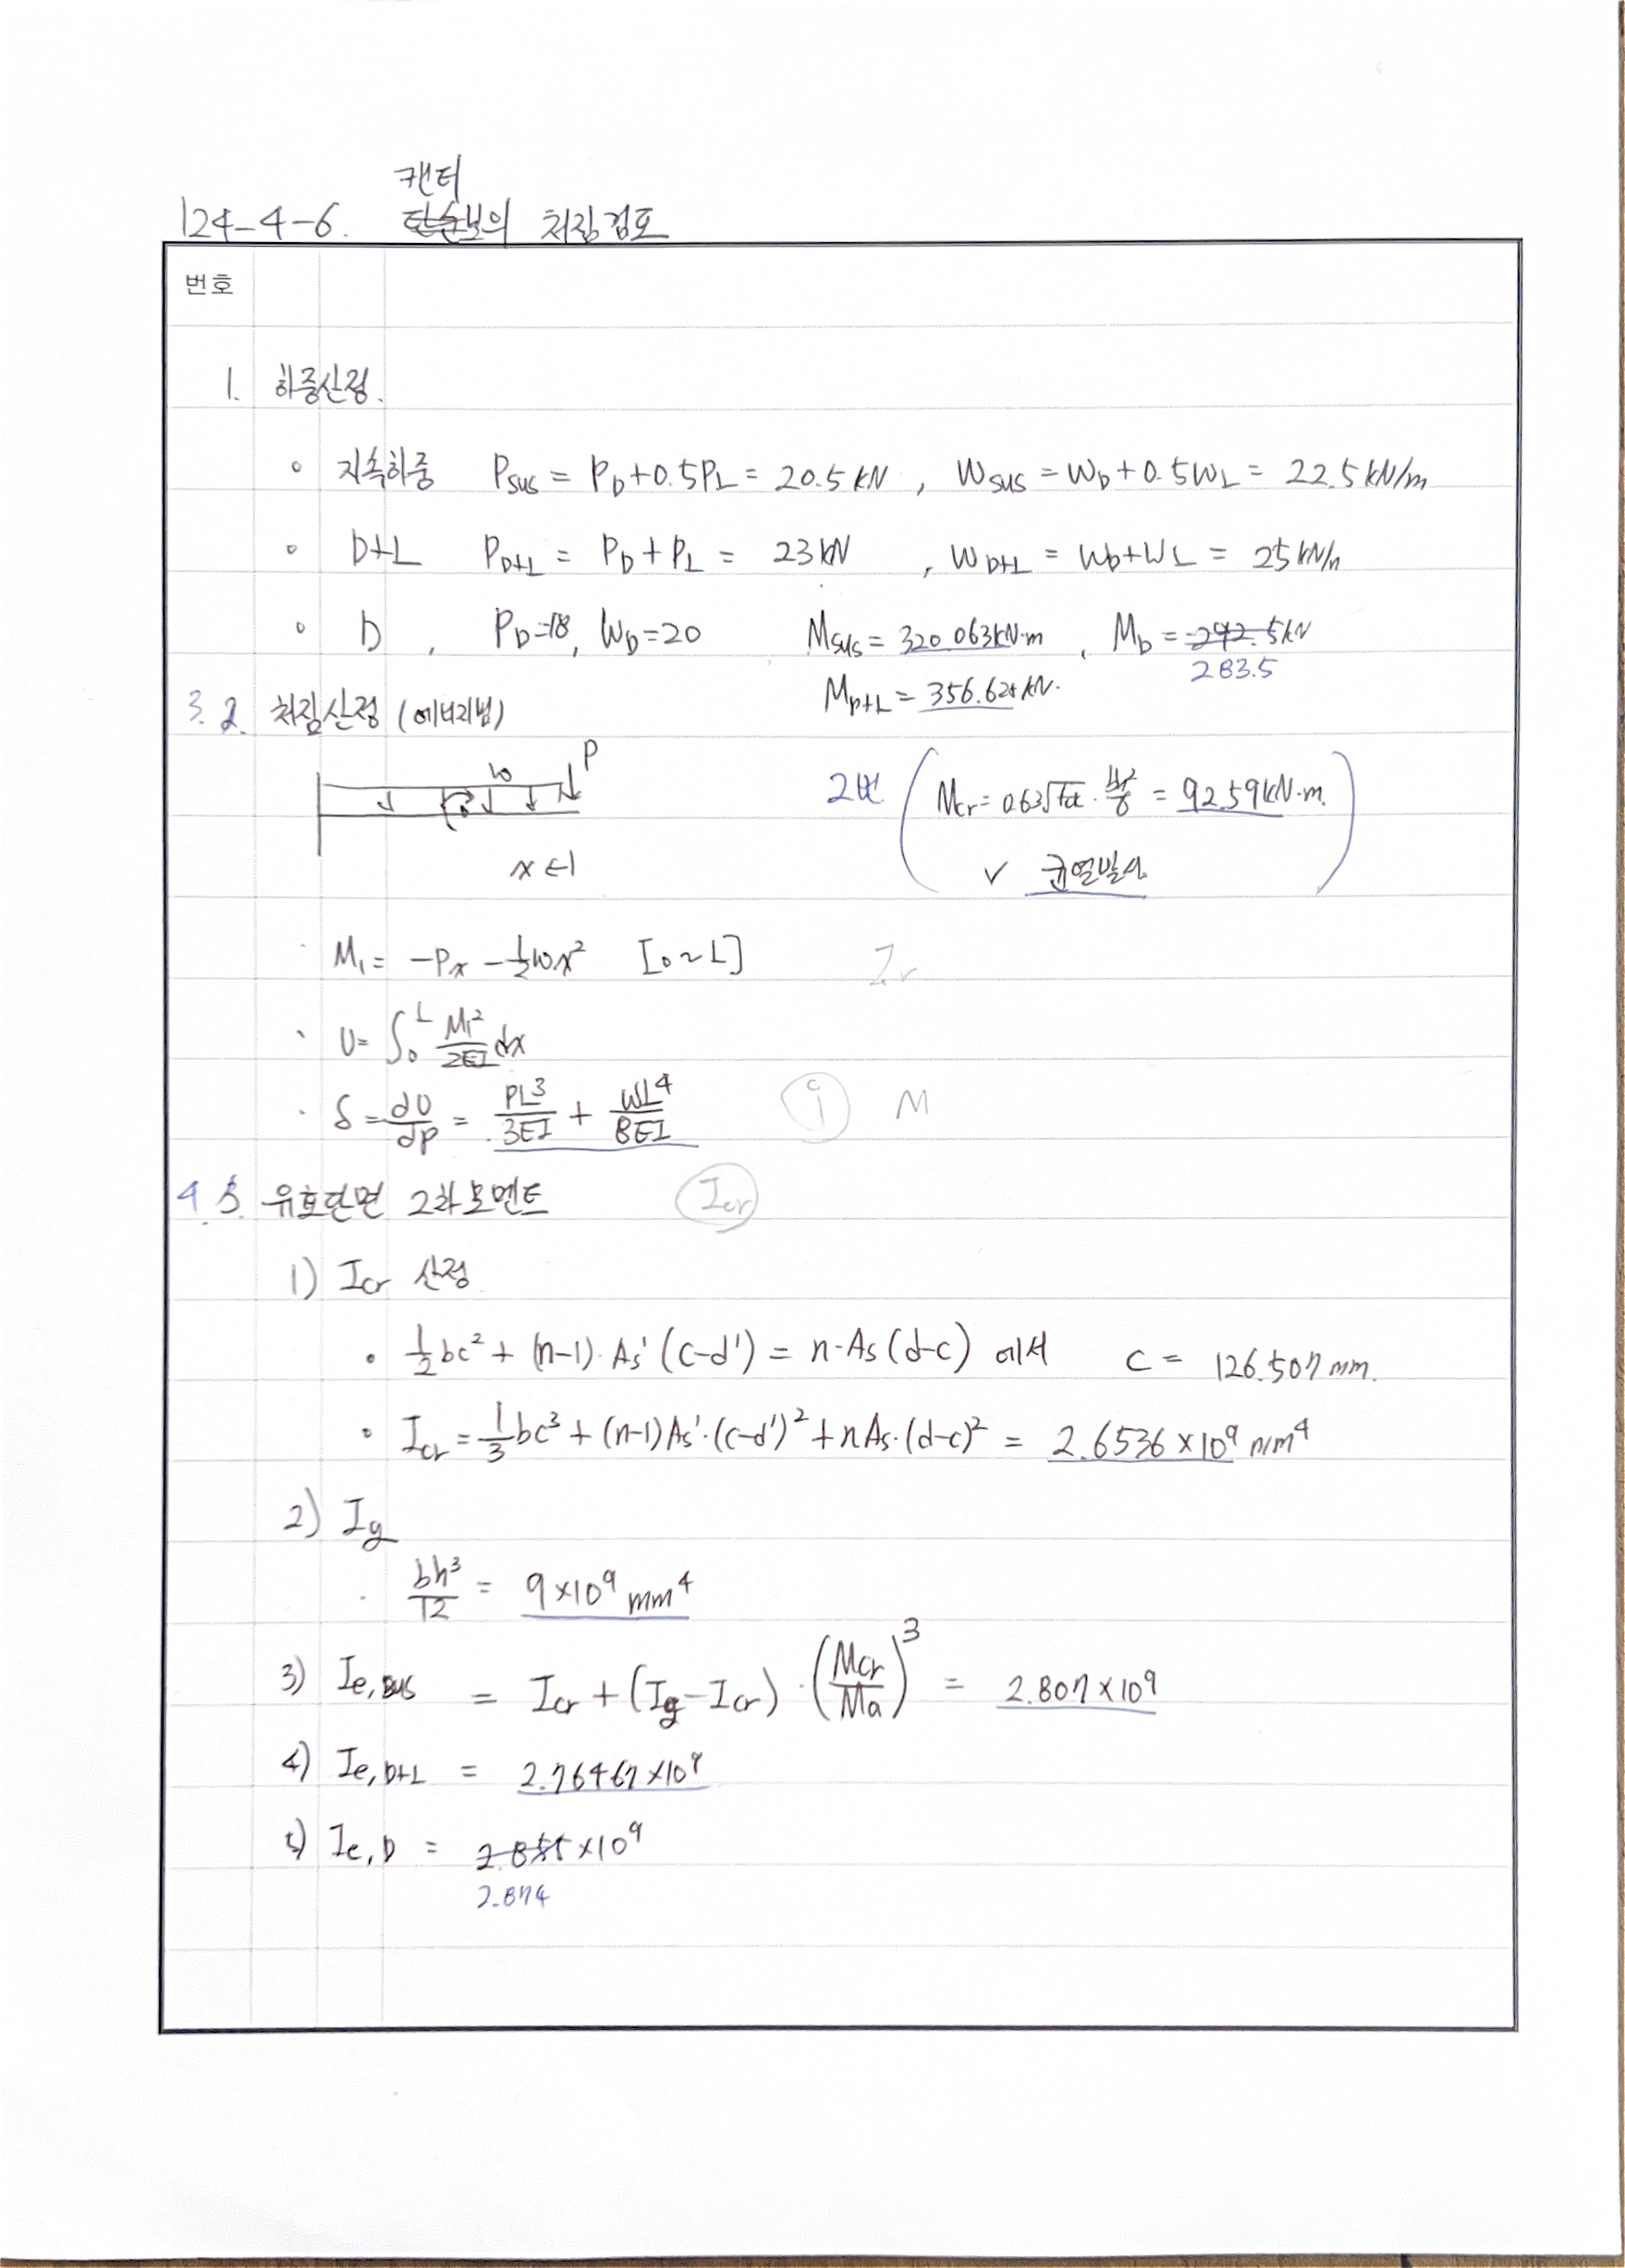 캔터
124-4-6. 단순보의 처짐검토
번호
1. 하중산정.
∘ 지속하중 Psus = PD+0.5PL = 20.5 kN , Wsus = WD+0.5WL = 22.5 kN/m
∘ D+L PD+L = PD+PL = 23 kN , WD+L = WD+WL = 25 kN/m
∘ D , PD=18, WD=20 Msus = 320.063kN·m , MD = 292.5kN
283.5
MD+L = 356.625 kN.
3. 2. 처짐산정 (에너지법)
w P
2번 ( Mcr = 0.63√fck · bh²/6 = 92.59kN·m. )
x ←
✓ 균열발생
· M₁ = -Px - ½wx² [0~L] Ir
· U = ∫₀ᴸ M₁²/2EI dx
· δ = dU/dP = PL³/3EI + WL⁴/8EI M
4. 3. 유효단면 2차모멘트 Icr
1) Icr 산정
• ½bc² + (n-1)·As'(c-d') = n·As(d-c) 에서 c = 126.507 mm.
• Icr = ⅓bc³ + (n-1)As'·(c-d')² + nAs·(d-c)² = 2.6536×10⁹ mm⁴
2) Ig
· bh³/12 = 9×10⁹ mm⁴
3) Ie,sus = Icr + (Ig-Icr)·(Mcr/Ma)³ = 2.807×10⁹
4) Ie,D+L = 2.76467×10⁹
5) Ie,D = 2.855×10⁹
2.874